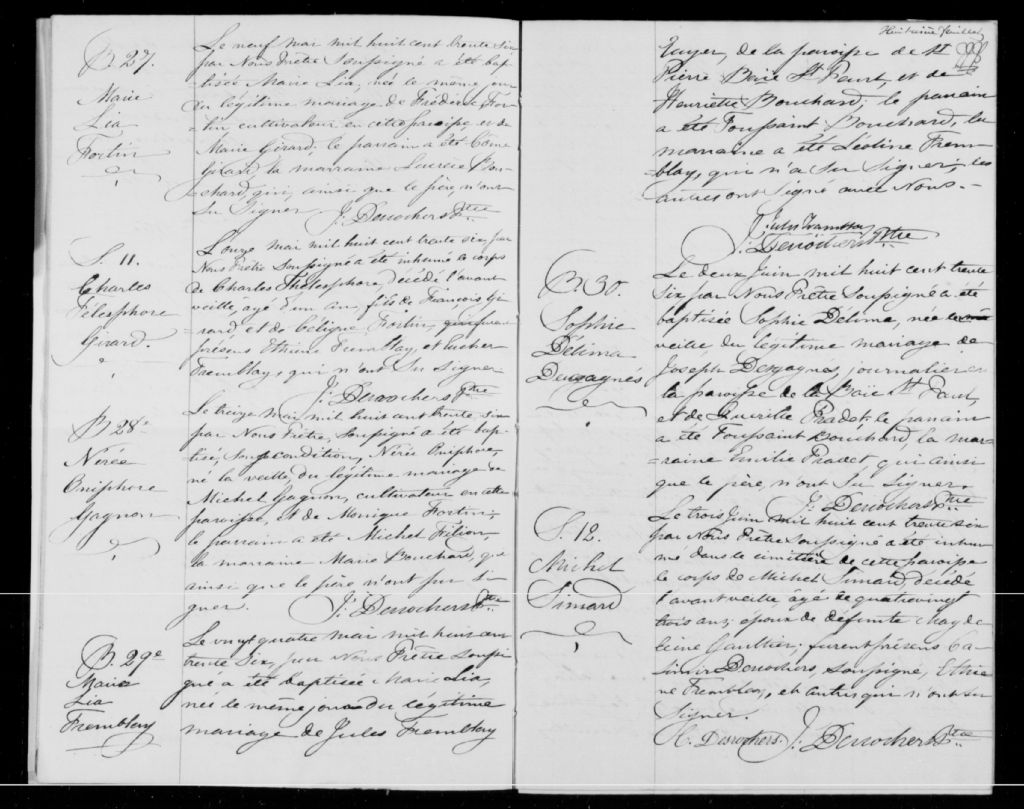 B. 27.
Marie
Lia
Fortin
Le neuf mai mil huit cent trente six
par Nous Prêtre Soussigné a été bap-
-tisée Marie Lia, née le même jour
du légitime mariage de Frédéric For-
-tin cultivateur en cette paroisse, et de
Marie Girard; le parrain a été Côme
Girard, la marraine Lucrèce Bou-
-chard, qui, ainsi que le père, n'ont
Su Signer J: Desrochers Ptre
S. 11.
Charles
Télesphore
Girard.
L'onze mai mil huit cent trente six, par
Nous Prêtre Soussigné a été inhumé le corps
de Charles Thélesphore, décédé l'avant
veille, âgé d'un an, fils de François Gi-
rard, et de Fortin,
présens Ethienne Tremblay, et
Tremblay, qui n'ont Su Signer
J: Desrochers Ptre
B 28e
Nérée
Onisphore
Gagnon
Le treize mai mil huit cent trente six
par Nous Prêtre, Soussigné a été bap-
-tisé, Sous condition, Nérée Onisphore,
né la veille, du légitime mariage de
Michel Gagnon, cultivateur en cette
paroisse, et de Monique Fortin;
le parrain a été Michel
la marraine Marie Bouchard, qui
ainsi que le père n'ont pu si-
gner. J: Desrochers Ptre
B. 29e
Marie
Lia
Tremblay
Le vingt quatre mai mil huit cent
trente Six, par Nous Prêtre Soussi-
gné a été baptisée Marie Lia,
née le même jour du légitime
mariage de Jules Tremblay
Huitième feuillet
de la paroisse de St
Pierre Baie St Paul, et de
Henriette Bouchard; le parrain
a été Toussaint Bouchard, la
marraine a été Léoline Trem-
-blay, qui n'a Su Signer; les
autres ont Signé avec Nous.-
Jules Tremblay
J: Desrochers Ptre
B 30.
Sophie
Délima
Desgagnés
Le deux Juin mil huit cent trente
six par Nous Prêtre Soussigné a été
baptisée Sophie Délima, née la
veille, du légitime mariage de
Joseph Desgagnés, journalier en
la paroisse de la Baie St Paul,
et de Pradet; le parrain
a été Toussaint Bouchard, la mar-
-raine Emilie Pradet qui ainsi
que le père, n'ont Su Signer.
J: Desrochers Ptre
S. 12.
Michel
Simard
Le trois Juin mil huit cent trente six
par Nous Prêtre Soussigné a été inhu-
mé dans le cimitière de cette paroisse
le corps de Michel Simard, décédé
l'avant veille, âgé de quatrevingt
trois ans; époux de défunte Magde-
leine Gaultier; furent présens Ca-
simir Desrochers, Soussigné, Ethie
ne Tremblay, et autres qui n'ont su
Signer.
C. Desrochers. J: Desrochers Ptre